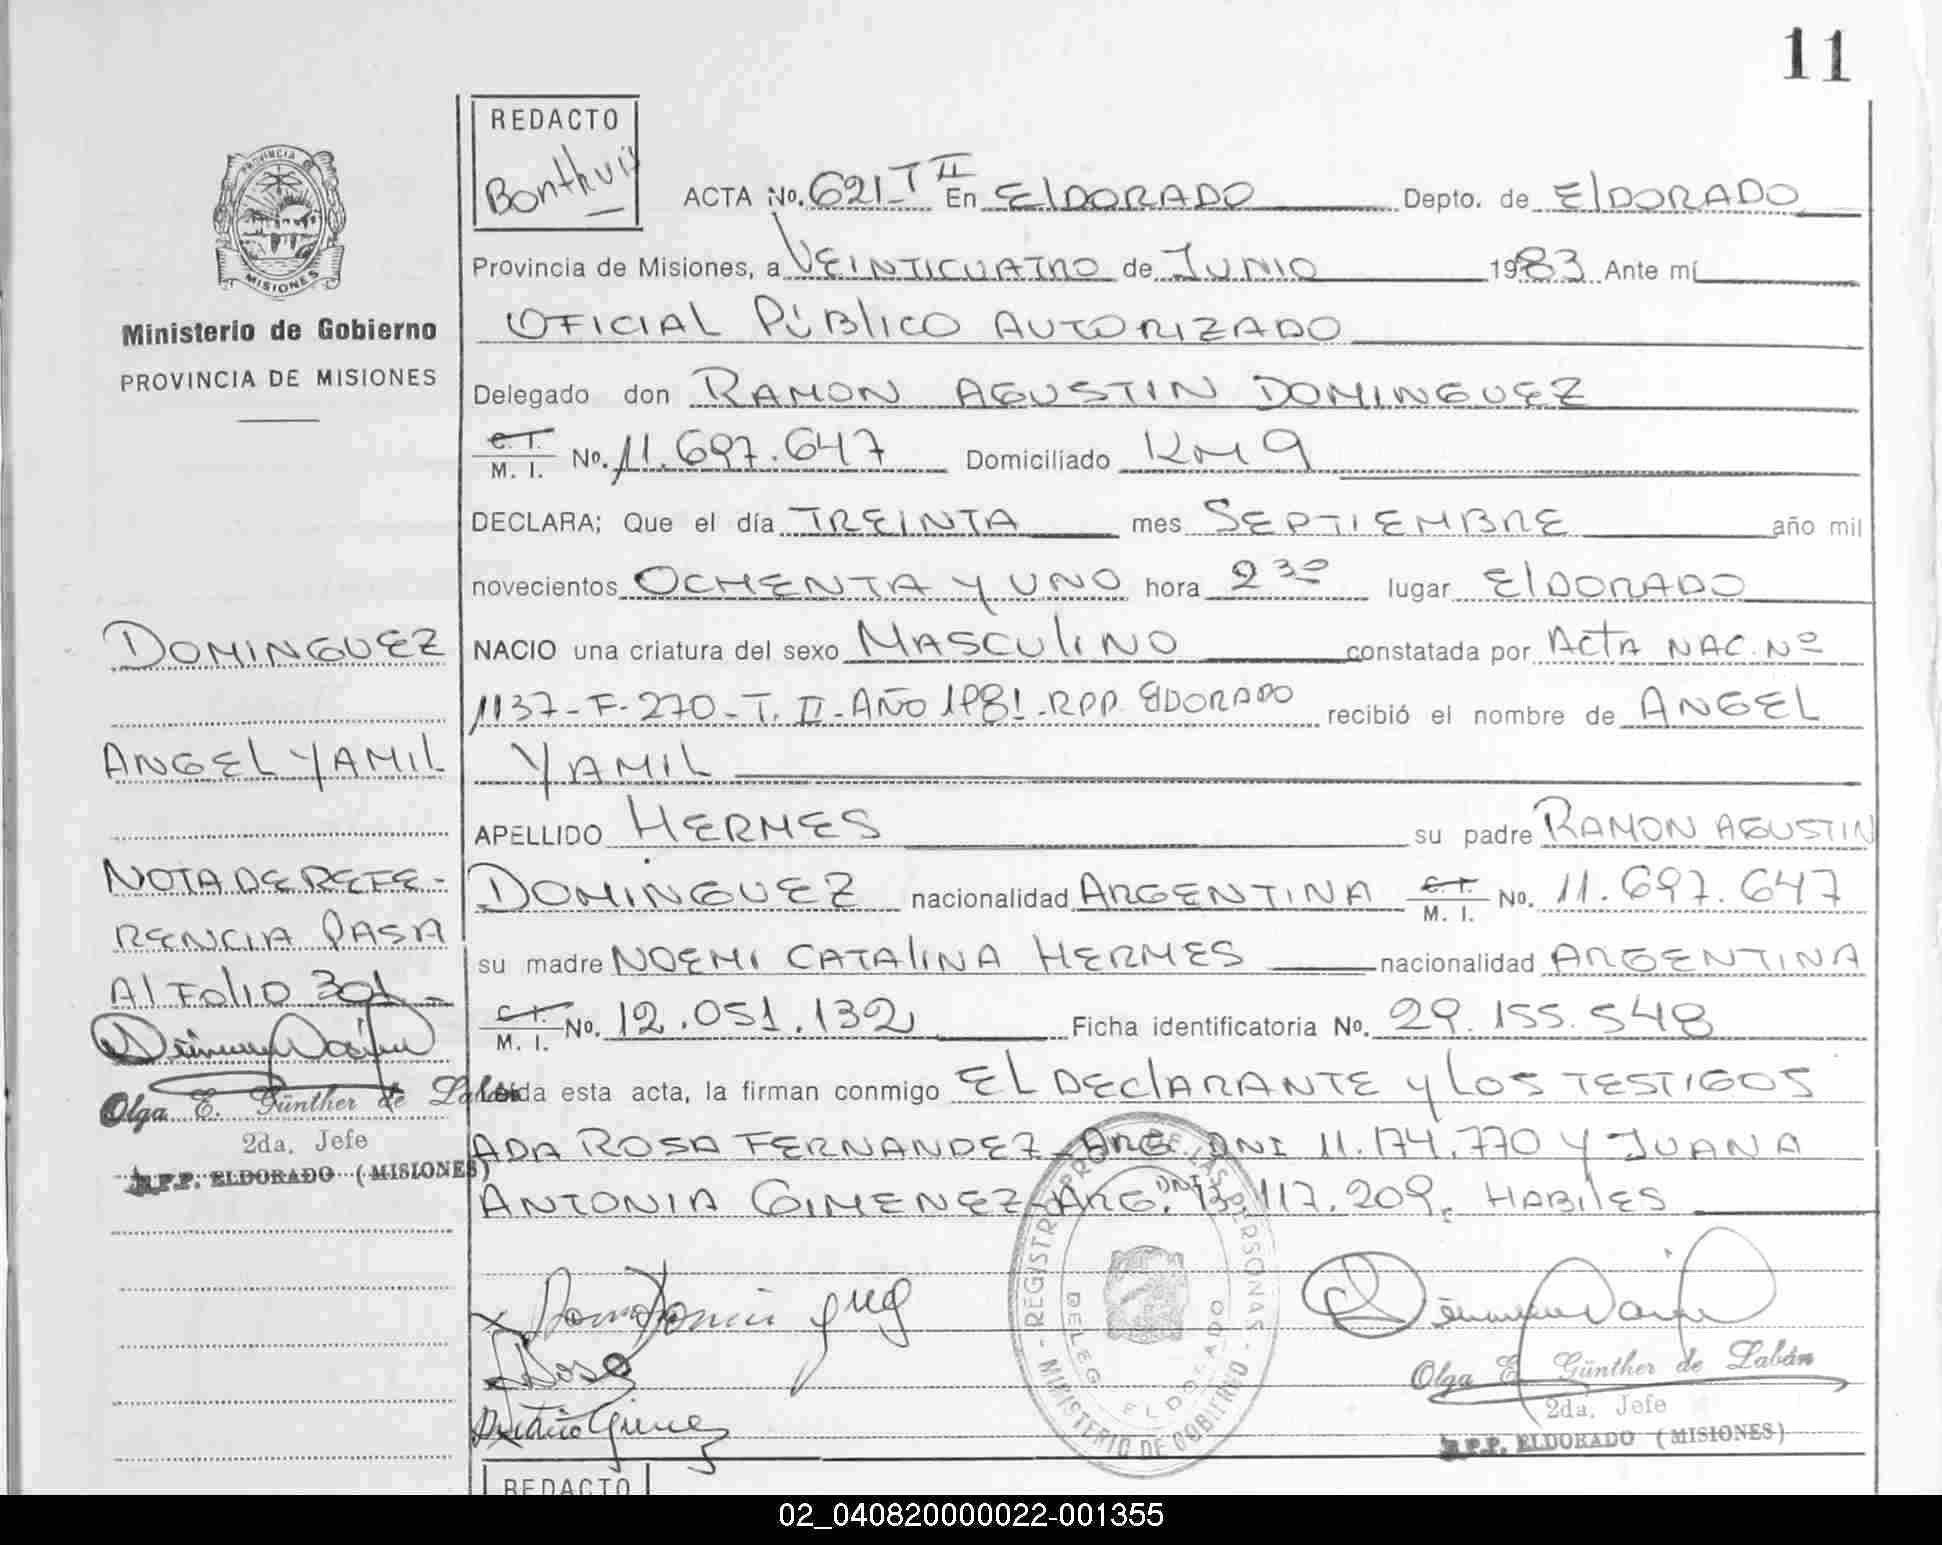 11
REDACTO
Bonthuis
ACTA No. 621-T II En ElDORADO Depto. de ElDORADO
Provincia de Misiones, a VEINTICUATRO de JUNIO 1983 Ante mí
OFICIAL PÚBlICO AUTORIZADO
Delegado don RAMON AGUSTIN DOMINGUEZ
C. I. M. I. No. 11.697.647 Domiciliado KM 9
DECLARA; Que el día TREINTA mes SEPTIEMBRE año mil
novecientos OCHENTA Y UNO hora 2 30 lugar ElDORADO
NACIO una criatura del sexo MASCUlINO constatada por ACTA NAC. Nº
1137-F-270-T. II-AÑO 1981-RPP. ElDORADO recibió el nombre de ANGEL
YAMIL
APELLIDO HERMES su padre RAMON AGUSTIN
DOMINGUEZ nacionalidad ARGENTINA C. I. M. I. No. 11.697.647
su madre NOEMI CATAlINA HERMES nacionalidad ARGENTINA
C. I. M. I. No. 12.051.132 Ficha identificatoria No. 29.155.548
Leída esta acta, la firman conmigo EL DEClARANTE y LOS TESTIGOS
ADA ROSA FERNANDEZ-ARG. DNI 11.174.770 Y JUANA
ANTONIA GIMENEZ-ARG. DNI 13.117.209, HABILES
Ministerio de Gobierno
PROVINCIA DE MISIONES
DOMINGUEZ
ANGEL YAMIL
NOTA DE REFE-
RENCIA PASA
Al FOlIO 301-
Olga E. Günther de Labán
2da. Jefe
R.P.P. ELDORADO (MISIONES)
PROVINCIA
MISIONES
REGISTRO PROV. DE LAS PERSONAS
MINISTERIO DE GOBIERNO
DELEG. ELDORADO
Olga E. Günther de Labán
2da. Jefe
R.P.P. ELDORADO (MISIONES)
REDACTO
02_040820000022-001355